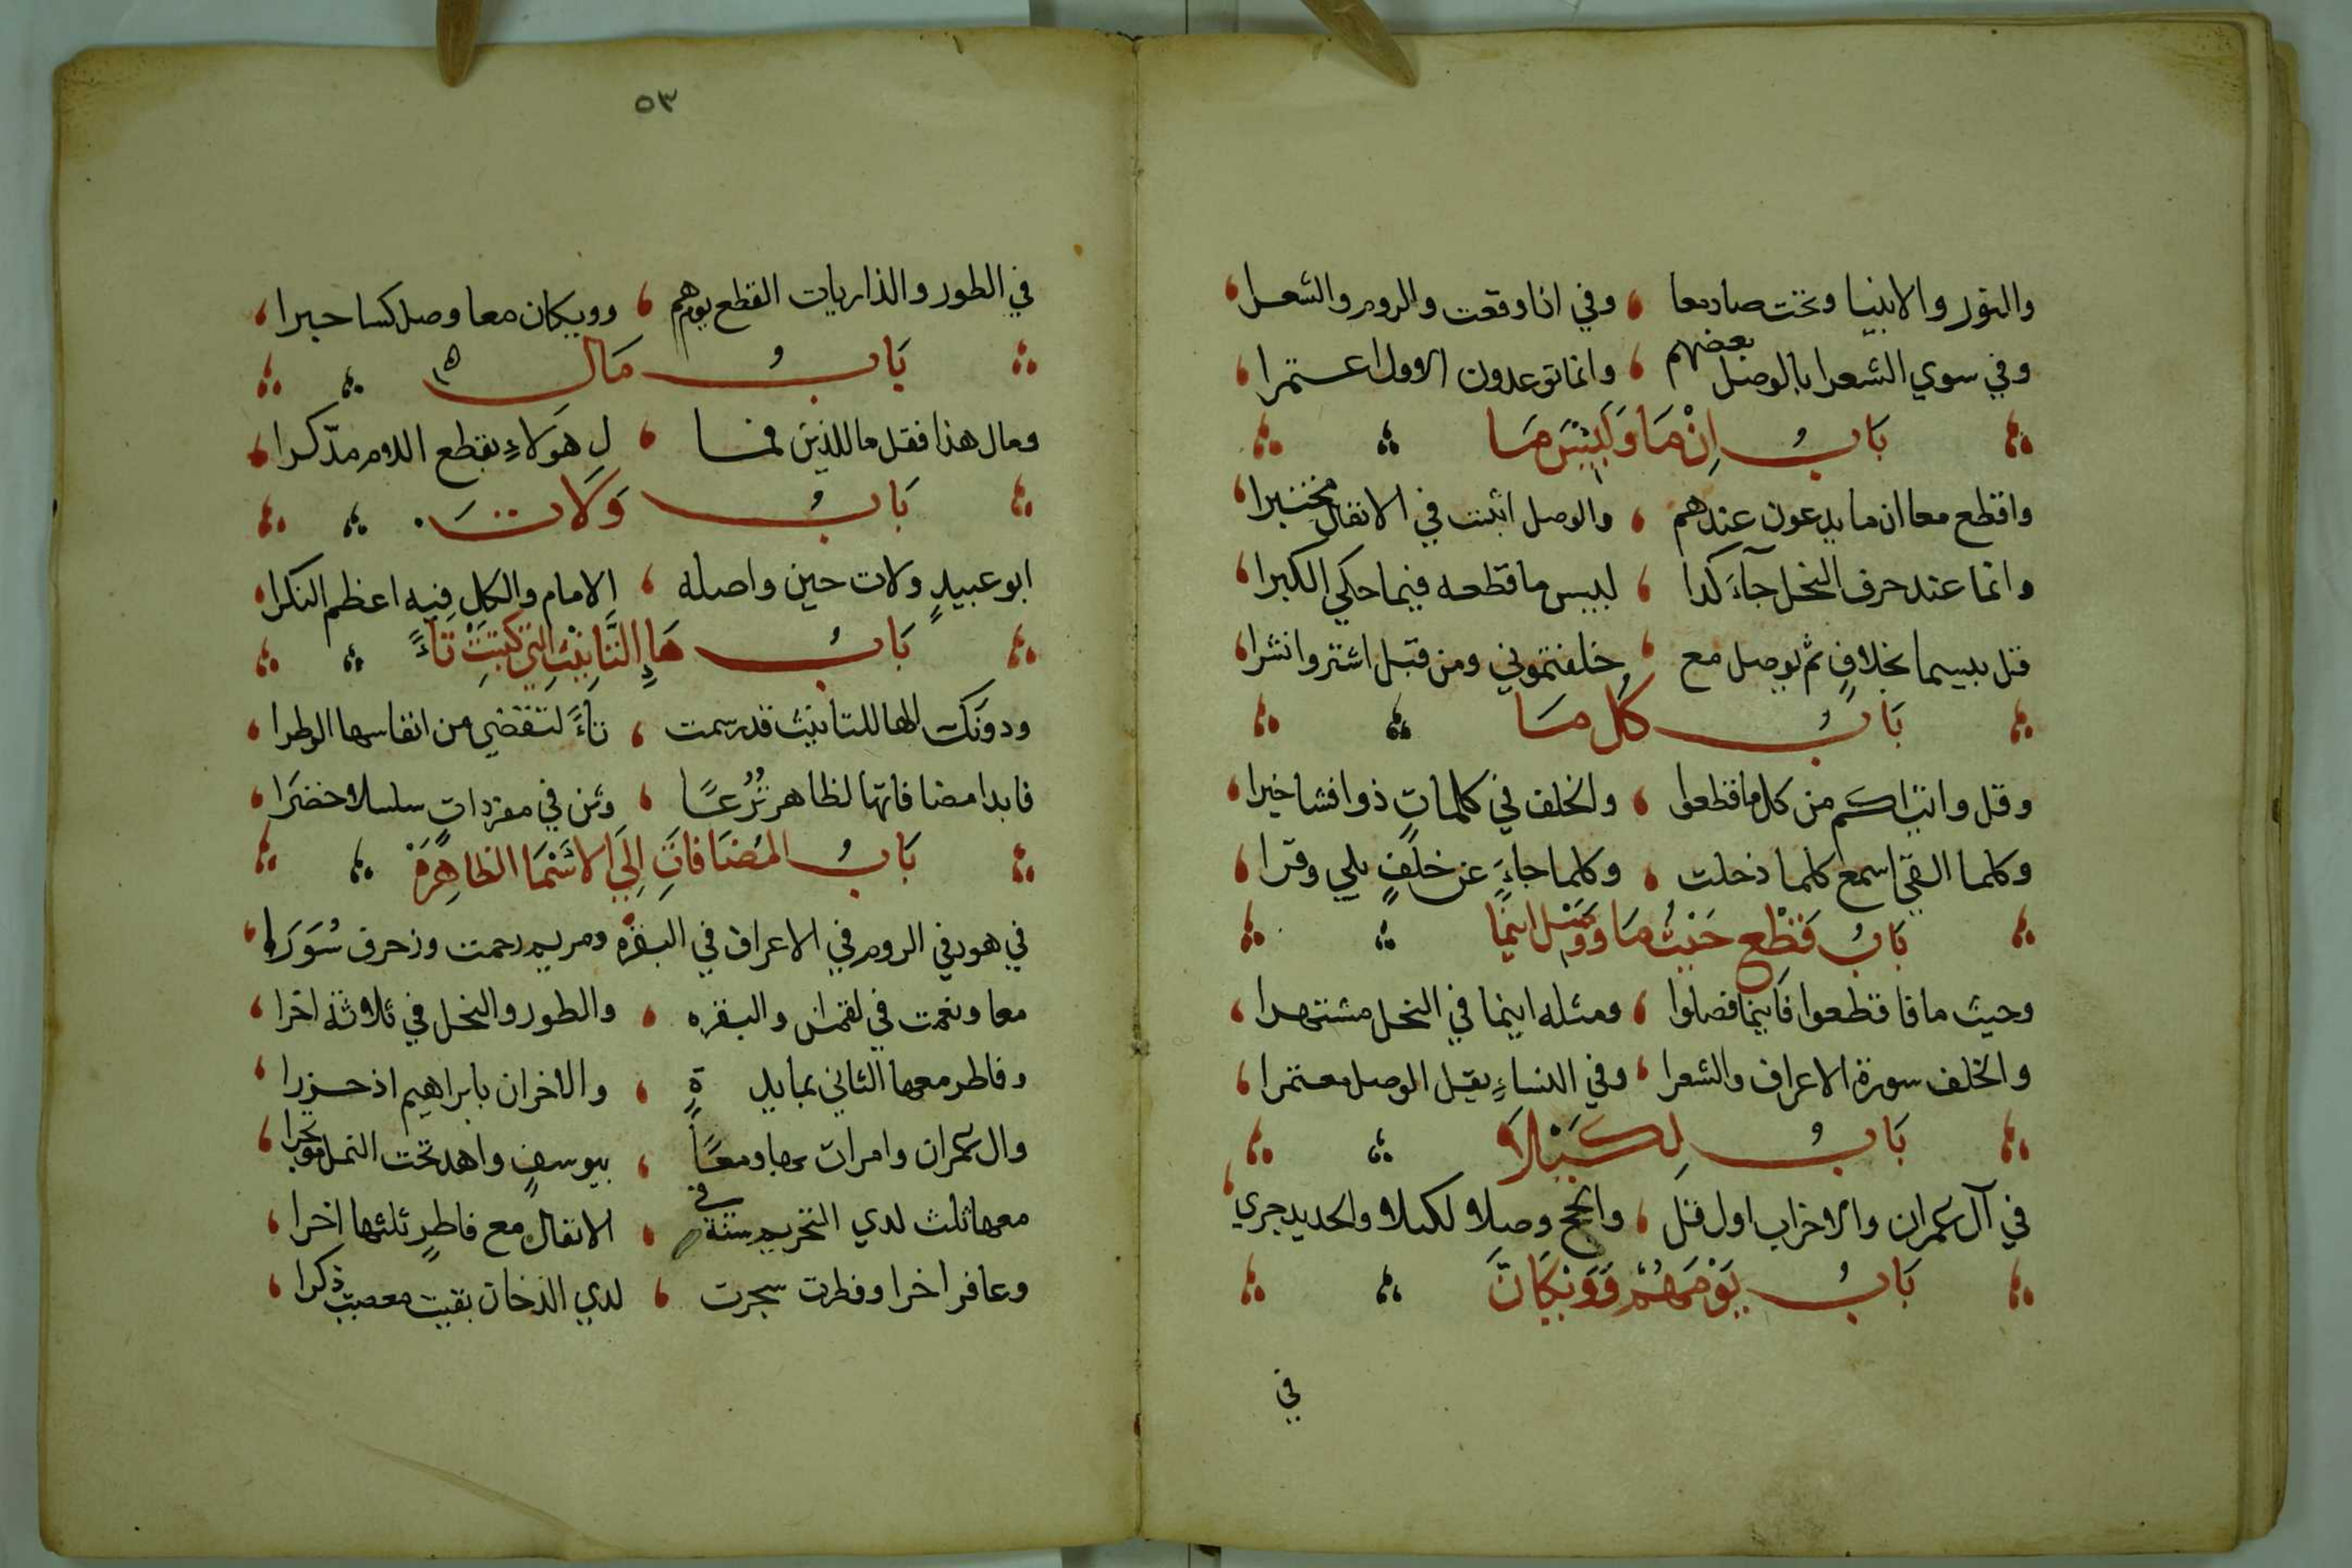 والنور والانبيا وتحت صاد معا ، وفي اذا وقعت والروم والشعرا ،
وفي سوي الشعرا بالوصل بعضهم ، وانما توعدون الاول اعتمرا ،
بَابُ اِنْ مَا وَلَبِئْسَ مَا
واقطع معا ان ما يدعون عندهم ، والوصل اثبت في الانفال مختبرا ،
وانما عند حرف النحل جآءَ كذا ، لبيس ما قطعه فيما حكي الكبرا ،
قل بيسما بخلافٍ ثم يوصل مع ، خلفتموني ومن قبل اشتروا نشرا ،
بَابُ كُل مَا
وقل واتيٰكم من كل ما قطعوا ، والخلف في كلماتٍ ذوا فشا خبرا ،
وكلما القي اسمع كلما دخلت ، وكلما جاءَ عن خلفٍ يلي وقرا ،
بَابُ قَطْع حَيْثُ مَا وَوَصْل اينَمَا
وحيث ما فاقطعوا فاينما فصلوا ، ومثله اينما في النحل مشتهرا ،
والخلف سورة الاعراف والشعرا ، وفي النساءِ يقل الوصل معتمرا ،
بَابُ لِكَيْلَا
في آل عمران والاحزاب اول قل ، والحج وصلا لكيلا والحديد جري ،
بَابُ يَوْمَهُمْ وَوَيْكَانَ
في
٥٣
في الطور والذاريات القطع يوم هم ، وويكان معا وصل كسا حبرا ،
بَابُ مَال
ومال هذا فقل مال للذين فما ، ل هولاءِ بقطع اللام مدّكرا ،
بَابُ وَلَات
ابو عبيدٍ ولات حين واصله ، الامام والكل فيه اعظم النكرا ،
بَابُ هَاءِ التَّانِيْثِ التي كُتِبَتْ تَاءً
ودونك الها للتانيث قد رسمت ، تاءً لتقضي من انفاسها الوطرا ،
فابدا مضافاتها لظاهر تُرُعًا ، وثن في مفرداتٍ سلسلا خضرَا ،
بَابُ المُضَافَاتِ اِلَي الاسْمَا الظاهِرَة
في هود في الروم في الاعراف في البقره ومريم رحمت وزخرف سُوَرَا ،
معا ونعمت في لقمان والبقره ، والطور والنحل في ثلاثة اخرا ،
وفاطر معها الثاني بمايدةٍ ، والاخران بابراهيم اذ حزرا ،
وال عمران وامرات بها ومعًا ، بيوسفٍ واهد تحت النمل موتجرا ،
معها ثلث لدي التحريم سنة في ، الانفال مع فاطرٍ ثلثها اخرا ،
وغافر اخرا وفطرت شجرت ، لدي الدخان بقيت معصيت ذكرا ،